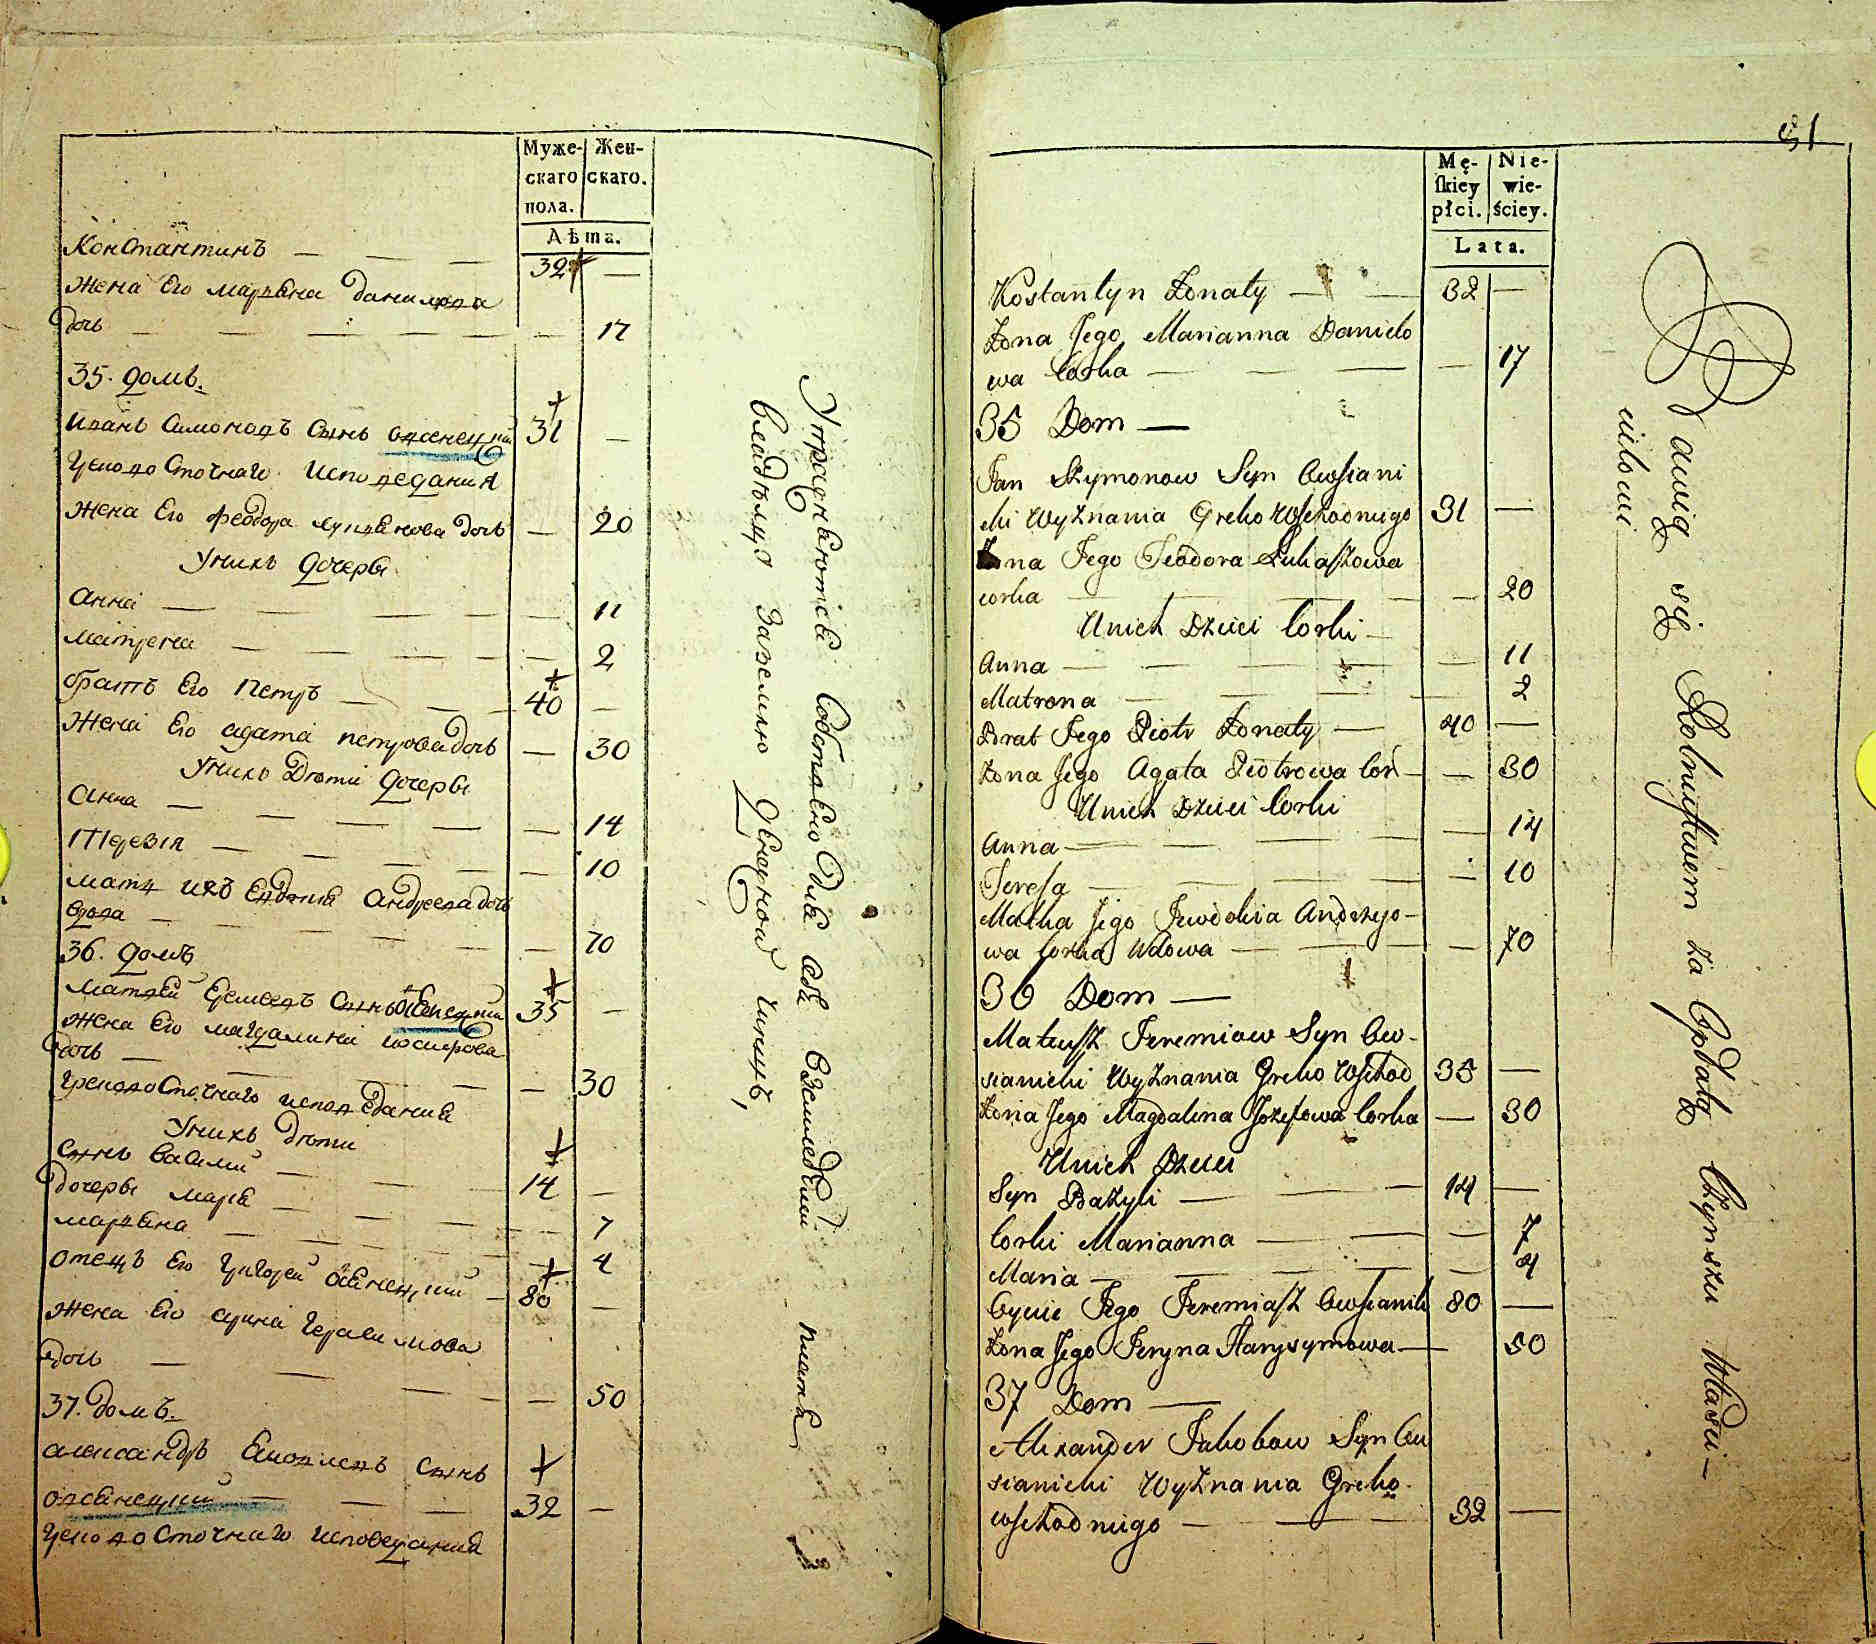 Муже-
скаго
пола.
Жен-
скаго.
Лѣта.
Константинъ — — — 32 —
Жена Его марьяна данилова
дочь — — — — — 17
35. домъ.
иванъ Симоновъ Сынъ овсянецкий 31 —
Грековосточнаго исповедания
Жена Его феодора лукьянова дочь — 20
Унихъ дочеры
Анна — — — — 11
матрена — — — — 2
братъ Его Петръ — — 40 —
Жена Его агата петрова дочь — 30
Унихъ Дѣти дочеры
Анна — — — — 14
Терезия — — — — 10
мать ихъ Евдокия Андреева дочь
вдова — — — — 70
36. домъ
матвей Еремеевъ Сынъ овсянецкий 35 —
жена Его магдалина иосифова
дочь — — — — 30
грековосточнаго исповедания
Унихъ дѣти
Сынъ василий — — 14 —
дочеры мария — — — 7
марьяна — — — 4
отецъ Его Григорей овсянецкий — 80 —
жена Его ирина Герасимова
дочь — — — — 50
37. домъ.
александръ Сынъ
овсянецкий — — — 32 —
Грековосточнаго исповедания
Упражняются Собственно для себя вземледелии платя
владѣльцу Заземлю Денежной чиншъ,
51
Mę-
skiey
płci.
Nie-
wie-
ściey.
Lata.
Kostantyn Żonaty — — 32 —
Żona Jego Marianna Daniło
wa Corka — — — — 17
35 Dom —
Jan Szymonow Syn Owsiani
cki Wyznania Greko Wschodniego 31 —
Żona Jego Teodora Łukaszowa
corka — — — — 20
Unich Dzieci Corki —
Anna — — — — 11
Matrona — — — — 2
Brat Jego Piotr Żonaty — 40 —
Żona Jego Agata Piotrowa Cor — — 30
Unich Dzieci Corki
Anna — — — — 14
Teresa — — — — 10
Matka Jego Jewdokia Andrzejo-
wa Corka Wdowa — — — 70
36 Dom —
Mateusz Jeremiow Syn Ow-
sianicki Wyznania Greko Wschod 35 —
Żona Jego Magdalina Jozefowa Corka — 30
Unich Dzieci
Syn Bazyli — — — 14 —
Corki Marianna — — — 7
Maria — — — — 4
Oyciec Jego Jeremiasz Owsianik 80 —
Żona Jego Jeryna Harysymowa — 50
37 Dom —
Alexander Jakobow Syn Ow
sianicki Wyznania Greko-
wschodniego — — — 32 —
Bawią się Rolnictwem za Opłatą Czynszu Właści-
cielowi